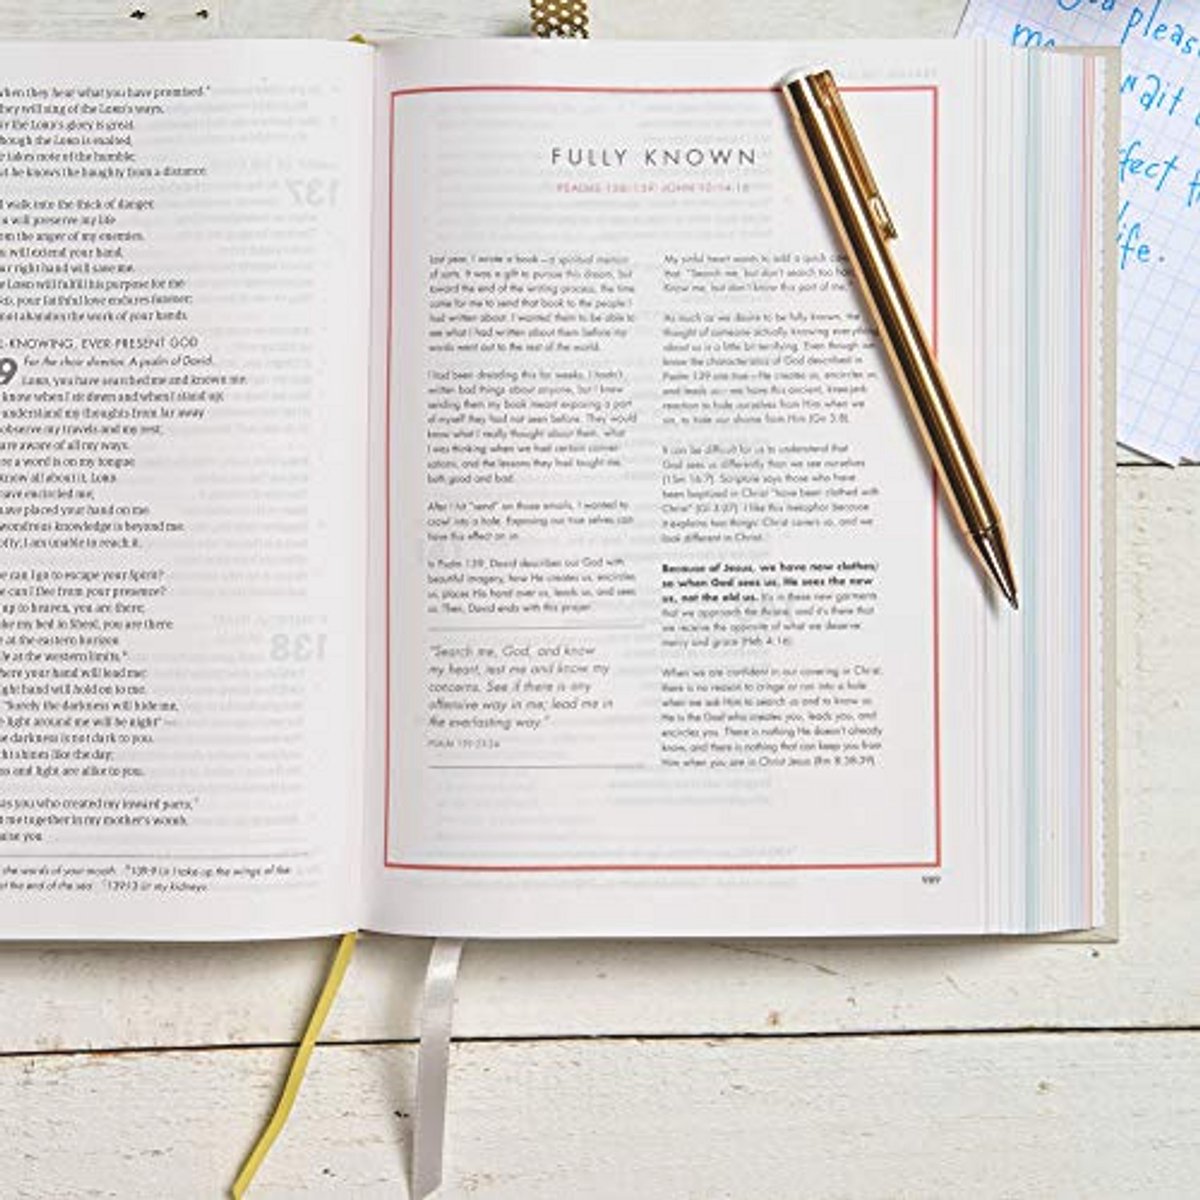 when they hear what you have promised."
they will sing of the LORD's ways,
for the LORD's glory is great.
though the LORD is exalted,
takes note of the humble;
but he knows the haughty from a distance.
I walk into the thick of danger,
will preserve my life
from the anger of my enemies.
will extend your hand;
your right hand will save me.
LORD will fulfill his purpose for me.
LORD, your faithful love endures forever;
not abandon the work of your hands.
-KNOWING, EVER-PRESENT GOD
9 For the choir director. A psalm of David.
LORD, you have searched me and known me.
know when I sit down and when I stand up;
understand my thoughts from far away.
observe my travels and my rest;
are aware of all my ways.
a word is on my tongue,
know all about it, LORD.
have encircled me;
have placed your hand on me.
wondrous knowledge is beyond me.
lofty; I am unable to reach it.
can I go to escape your Spirit?
can I flee from your presence?
up to heaven, you are there;
make my bed in Sheol, you are there.
at the eastern horizon
at the western limits,
there your hand will lead me;
right hand will hold on to me.
"Surely the darkness will hide me,
light around me will be night"
the darkness is not dark to you.
night shines like the day;
and light are alike to you.
was you who created my inward parts;
me together in my mother's womb.
praise you
the words of your mouth 139:9 Lit I take up the wings of the
at the end of the sea 139:13 Lit my kidneys
FULLY KNOWN
PSALMS 138-139; JOHN 10:14-18
Last year, I wrote a book—a spiritual memoir
of sorts. It was a gift to pursue this dream, but
toward the end of the writing process, the time
came for me to send that book to the people I
had written about. I wanted them to be able to
see what I had written about them before my
words went out to the rest of the world.
I had been dreading this for weeks. I hadn't
written bad things about anyone, but I knew
sending them my book meant exposing a part
of myself they had not seen before. They would
know what I really thought about them, what
I was thinking when we had certain conver-
sations, and the lessons they had taught me,
both good and bad.
After I hit "send" on those emails, I wanted to
crawl into a hole. Exposing our true selves can
have this effect on us.
In Psalm 139, David describes our God with
beautiful imagery, how He creates us, encircles
us, places His hand over us, leads us, and sees
us. Then, David ends with this prayer:
"Search me, God, and know
my heart; test me and know my
concerns. See if there is any
offensive way in me; lead me in
the everlasting way."
PSALM 139:23-24
My sinful heart wants to add a quick
that: "Search me, but don't search too
Know me, but don't know this part of me."
As much as we desire to be fully known, the
thought of someone actually knowing everything
about us is a little bit terrifying. Even though we
know the characteristics of God described in
Psalm 139 are true—He creates us, encircles us,
and leads us—we have this ancient, knee-jerk
reaction to hide ourselves from Him when we
sin, to hide our shame from Him (Gn 3:8).
It can be difficult for us to understand that
God sees us differently than we see ourselves
(1Sm 16:7). Scripture says those who have
been baptized in Christ "have been clothed with
Christ" (Gl 3:27). I like this metaphor because
it explains two things: Christ covers us, and we
look different in Christ.
Because of Jesus, we have new clothes;
so when God sees us, He sees the new
us, not the old us. It's in these new garments
that we approach the throne, and it's there that
we receive the opposite of what we deserve:
mercy and grace (Heb 4:16).
When we are confident in our covering in Christ,
there is no reason to cringe or run into a hole
when we ask Him to search us and to know us.
He is the God who creates you, leads you, and
encircles you. There is nothing He doesn't already
know, and there is nothing that can keep you from
Him when you are in Christ Jesus (Rm 8:38-39).
989
please
wait
life.